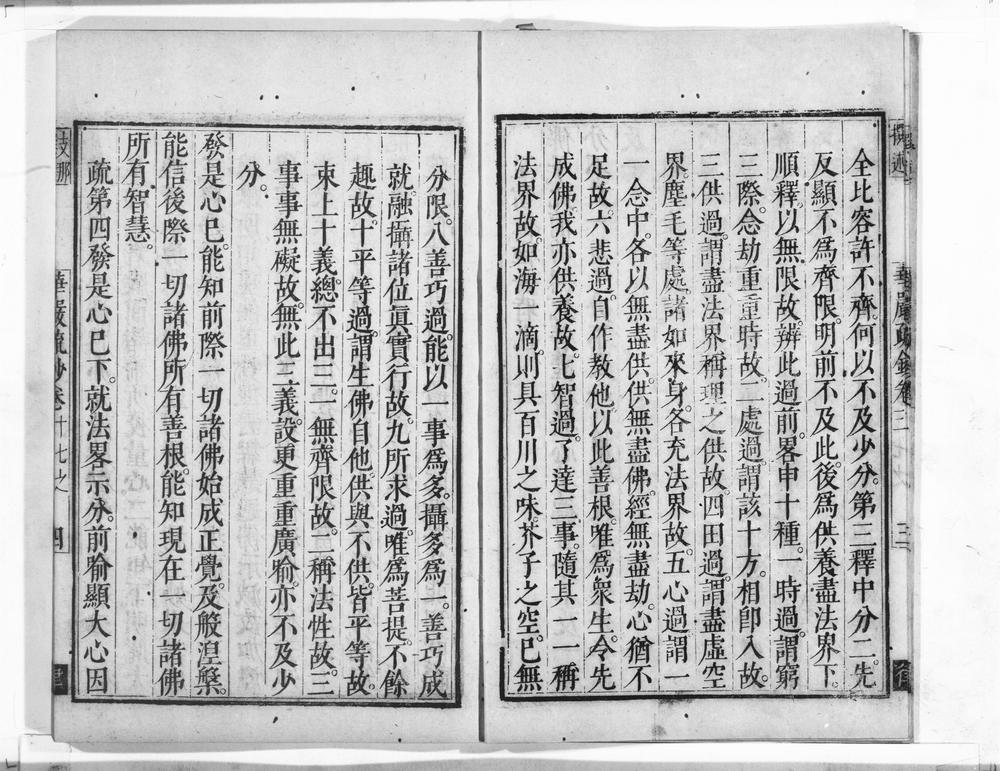 全比容許不齊。何以不及少分。第三釋中分二。先
反顯不爲齊限。明前不及此。後爲供養盡法界下。
順釋。以無限故。辨此過前。畧申十種。一時過。謂窮
三際。念劫重重時故。二處過。謂該十方。相卽入故。
三供過。謂盡法界稱理之供故。四田過。謂盡虛空
界。塵毛等處。諸如來身。各充法界故。五心過謂一
一念中。各以無盡供。供無盡佛。經無盡劫。心猶不
足故。六悲過。自作教他以此善根。唯爲衆生。令先
成佛。我亦供養故。七智過。了達三事。隨其一一稱
法界故。如海一滴。則具百川之味。芥子之空。已無
分限。八善巧過。能以一事爲多。攝多爲一。善巧成
就。融攝諸位眞實行故。九所求過。唯爲菩提。不餘
趣故。十平等過。謂生佛自他。供與不供。皆平等故。
束上十義。總不出三。一無齊限故。二稱法性故。三
事事無礙故。無此三義。設更重重廣喻。亦不及少
分。
發是心已。能知前際一切諸佛始成正覺。及般涅槃。
能信後際一切諸佛所有善根。能知現在一切諸佛
所有智慧。
疏第四發是心已下。就法畧示分。前喻顯大心因
華嚴疏鈔卷十七之
四
三